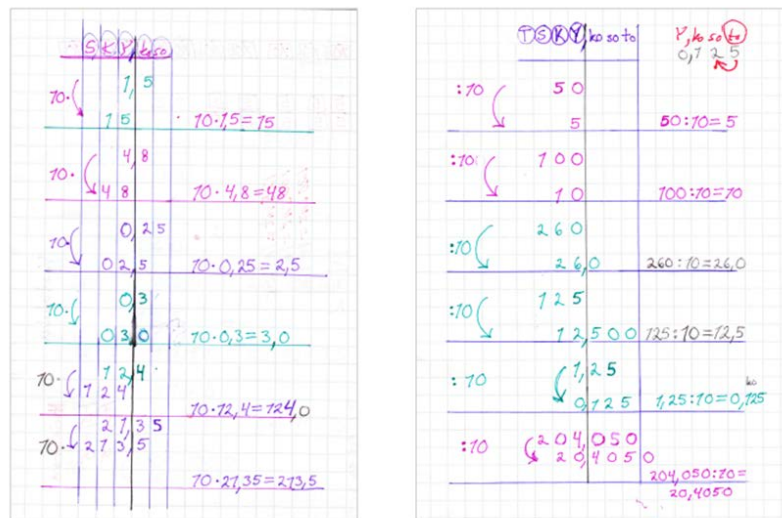 S K Y, ko so
1,5
10·
15
10·1,5=15
4,8
10·
48
10·4,8=48
0,25
10·
02,5
10·0,25=2,5
0,3
10·
03,0
10·0,3=3,0
12,4
10·
124
10·12,4=124,0
21,35
10·
213,5
10·21,35=213,5
T S K Y, ko so to
Y, ko so to
0,125
:10
50
5
50:10=5
:10
100
10
100:10=10
:10
260
26,0
260:10=26,0
:10
125
12,500
125:10=12,5
:10
1,25
0,125
ko
1,25:10=0,125
:10
204,050
20,4050
204,050:10=
20,4050